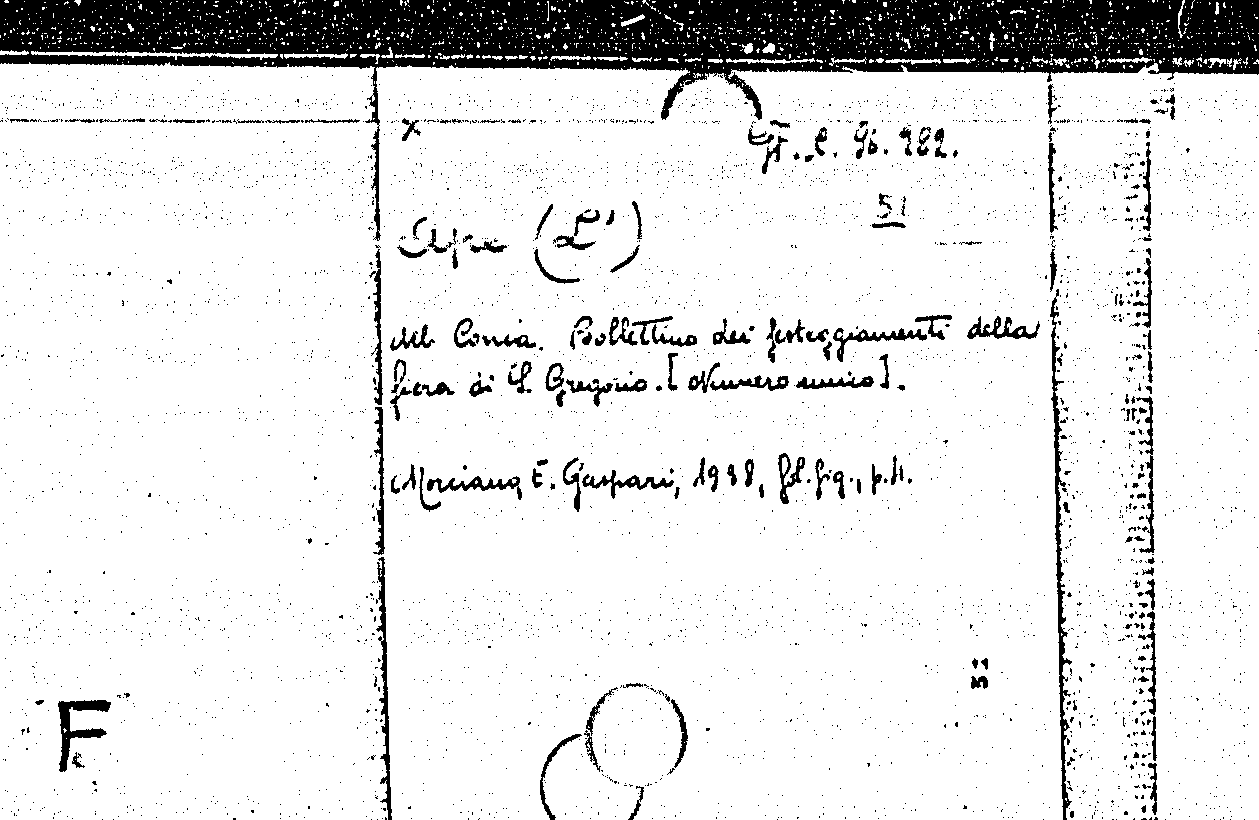 x
F. C. 96. 982.
51
Ape (L')
del Conca. Bollettino dei festeggiamenti della
fiera di S. Gregorio. [Numero unico].
Morciano, E. Gaspari, 1988, fol. fig., p. 4.
51
F